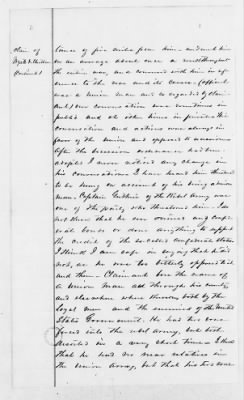 2
Claim of
some of five miles from him and met him
on an average about once a month throughout
the entire war, and conversed with him in ref-
erence to the war and its causes. Claimant
was a Union man and so regarded by claim-
ant, our conversation was sometimes in
public and at other times in private. His
conversation and actions were always in
favor of the Union and opposed to secession
After the secession ordinance had been
adopted I never noticed any change in
his conversations. I have heard him threatened
to be hung on account of his being a Union
man, Captain Guthrie of the Rebel Army was
one of the party who threatened him. I do
not think that he ever owned any confed-
erate bonds or done anything to support
the credit of the so called confederate states
I think I am safe in saying that he did
not, as he was too bitterly opposed to it
and them. Claimant bore the name of
a Union man all through his county,
and elsewhere where known both by the
loyal men and the enemies of the United
States Government. He had two sons
forced into the rebel army, but both
deserted in a very short time. I think
that he had no near relatives in
the Union Army, but that his two sons